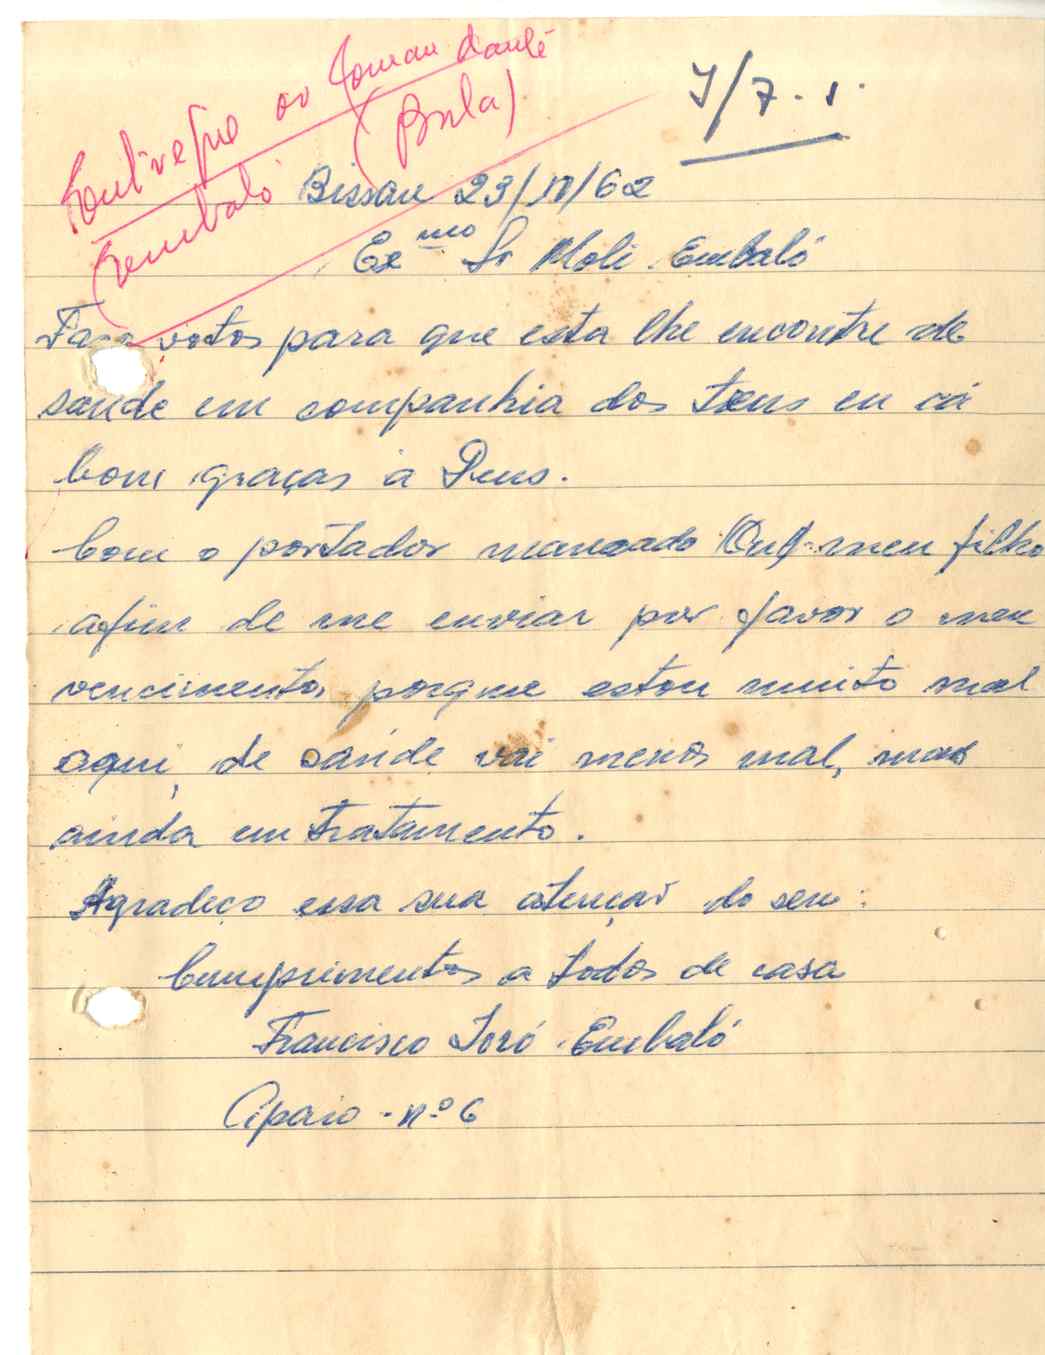 Entregue ao Comandante
Embaló (Bula)
J/7.1.
Bissau 23/11/62
Exmo Sr Moli Embaló
Faço votos para que esta lhe encontre de
saúde em companhia dos teus eu cá
bom graças a Deus.
Com o portador mancado meu filho
afim de me enviar por favor o meu
vencimento, porque estou muito mal
aqui, de saúde vai menos mal, mas
ainda em tratamento.
Agradeço essa sua atenção do seu:
Cumprimentos a todos de casa
Francisco Embaló
Cipaio - nº 6